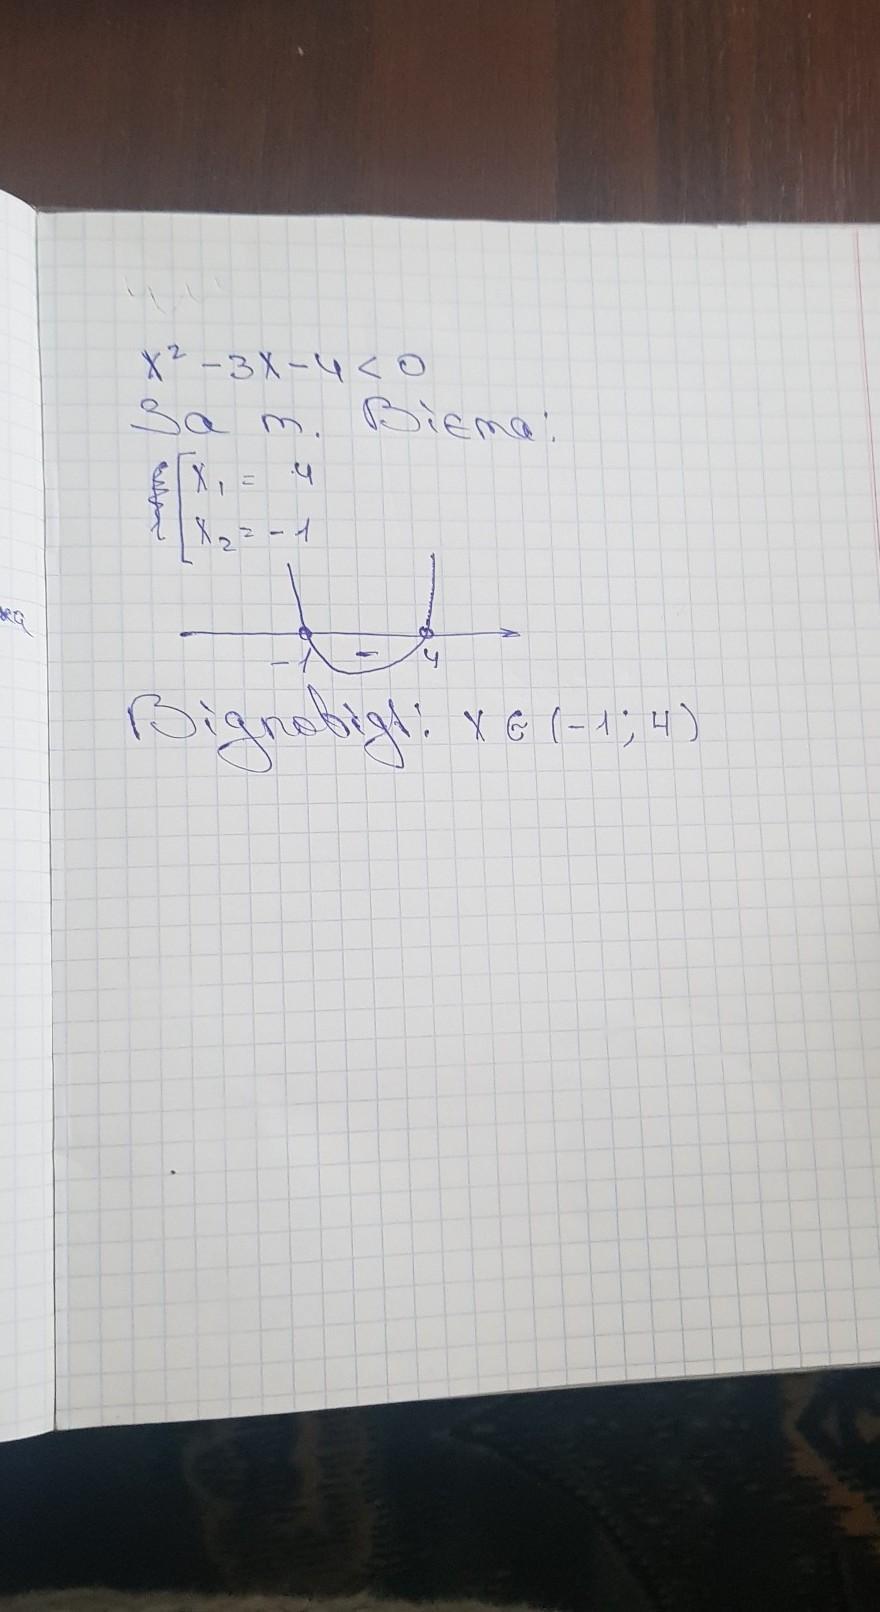 x² - 3x - 4 < 0
За т. Вієта:
x₁ = 4
x₂ = -1
-1 - 4
Відповідь: x ∈ (-1; 4)